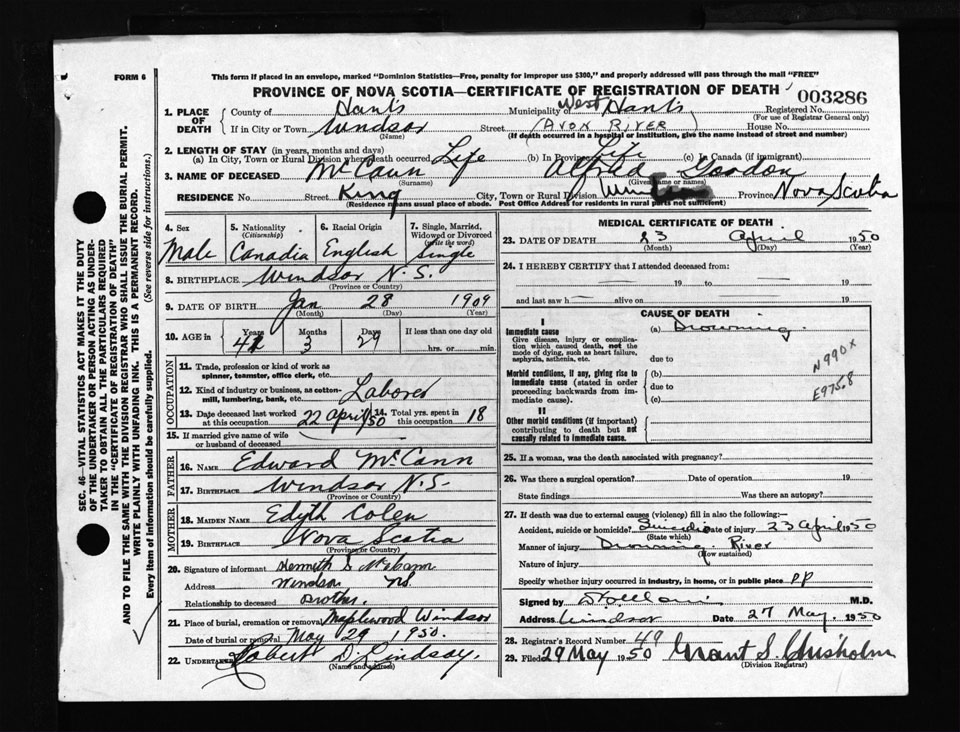 FORM 6
This form if placed in an envelope, marked "Dominion Statistics—Free, penalty for improper use $300," and properly addressed will pass through the mail "FREE"
PROVINCE OF NOVA SCOTIA—CERTIFICATE OF REGISTRATION OF DEATH
003286
1. PLACE OF DEATH
County of Hants Municipality of West Hants Registered No.
(For use of Registrar General only)
If in City or Town Windsor Street (AVON RIVER) House No.
(Name) (If death occurred in a hospital or institution, give the name instead of street and number)
2. LENGTH OF STAY (in years, months and days)
(a) In City, Town or Rural Division where death occurred Life (b) In Province Life (c) In Canada (if immigrant)
3. NAME OF DECEASED McCann Alfred Gordon
(Surname) (Given name or names)
RESIDENCE No. Street King City, Town or Rural Division Province Nova Scotia
(Residence means usual place of abode. Post Office Address for residents in rural parts not sufficient)
4. Sex Male
5. Nationality (Citizenship) Canadia
6. Racial Origin English
7. Single, Married, Widowed or Divorced (write the word) Single
8. BIRTHPLACE Windsor N.S.
(Province or Country)
9. DATE OF BIRTH Jan 28 1909
(Month) (Day) (Year)
10. AGE IN Years 41 Months 3 Days 29 If less than one day old
hrs. or min.
OCCUPATION
11. Trade, profession or kind of work as spinner, teamster, office clerk, etc.
12. Kind of industry or business, as cotton-mill, lumbering, bank, etc. Laborer
13. Date deceased last worked at this occupation 22 April/50 14. Total yrs. spent in this occupation 18
15. If married give name of wife or husband of deceased
FATHER
16. NAME Edward McCann
17. BIRTHPLACE Windsor N.S.
(Province or Country)
MOTHER
18. MAIDEN NAME Edyth Colen
19. BIRTHPLACE Nova Scotia
(Province or Country)
20. Signature of informant Kenneth S McCann
Address Windsor NS
Relationship to deceased Brother.
21. Place of burial, cremation or removal Maplewood Windsor
Date of burial or removal May 29 1950.
22. UNDERTAKER Robert D. Lindsay,
(Name and address)
MEDICAL CERTIFICATE OF DEATH
23. DATE OF DEATH 23 April 1950
(Month) (Day) (Year)
24. I HEREBY CERTIFY that I attended deceased from:
19 to 19
and last saw h alive on 19
CAUSE OF DEATH
I
Immediate cause (a) Drowning.
Give disease, injury or complication which caused death, not the mode of dying, such as heart failure, asphyxia, asthenia, etc.
due to
Morbid conditions, if any, giving rise to immediate cause (stated in order proceeding backwards from immediate cause).
(b)
due to
(c)
N990X
E975.8
II
Other morbid conditions (if important) contributing to death but not causally related to immediate cause.
25. If a woman, was the death associated with pregnancy?
26. Was there a surgical operation? Date of operation 19
State findings Was there an autopsy?
27. If death was due to external causes (violence) fill in also the following:—
Accident, suicide or homicide? Suicide Date of injury 23 April 1950
(State which)
Manner of injury Drowning. River
(How sustained)
Nature of injury
Specify whether injury occurred in industry, in home, or in public place PP
Signed by M.D.
Address Windsor Date 27 May. 1950
28. Registrar's Record Number 49
29. Filed 29 May 1950 Grant S. Chisholm
(Division Registrar)
SEC. 46—VITAL STATISTICS ACT MAKES IT THE DUTY
OF THE UNDERTAKER OR PERSON ACTING AS UNDER-
TAKER TO OBTAIN ALL THE PARTICULARS REQUIRED
IN THE "CERTIFICATE OF REGISTRATION OF DEATH"
AND TO FILE THE SAME WITH THE DIVISION REGISTRAR WHO SHALL ISSUE THE BURIAL PERMIT.
WRITE PLAINLY WITH UNFADING INK. THIS IS A PERMANENT RECORD.
Every item of information should be carefully supplied. (See reverse side for instructions.)